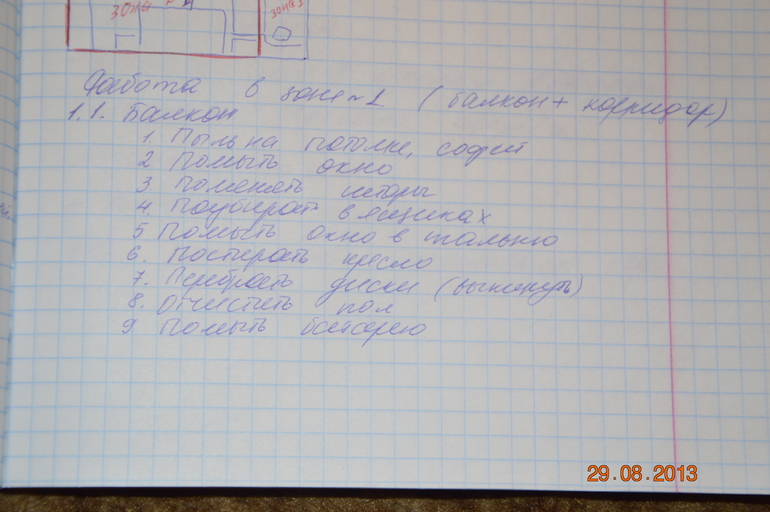 зона
зона 1
Работа в зоне №1 (балкон + корридор)
1.1. Балкон
1. Пыль на потолке, софит
2 Помыть окно
3. Поменять шторы
4. Поубирать в ящиках
5 Помыть окно в спальню
6. Постирать кресло
7. Перебрать диски (выкинуть)
8. Отчистить пол
9. Помыть батарею
29.08.2013